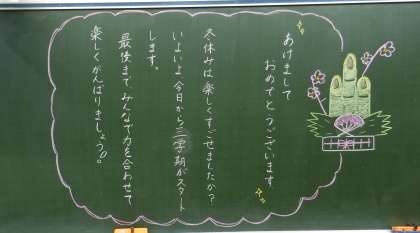 あけまして
おめでとうございます
冬休みは楽しくすごせましたか？
いよいよ今日から三学期がスタート
します。
最後まで、みんなで力を合わせて
楽しくがんばりましょう！